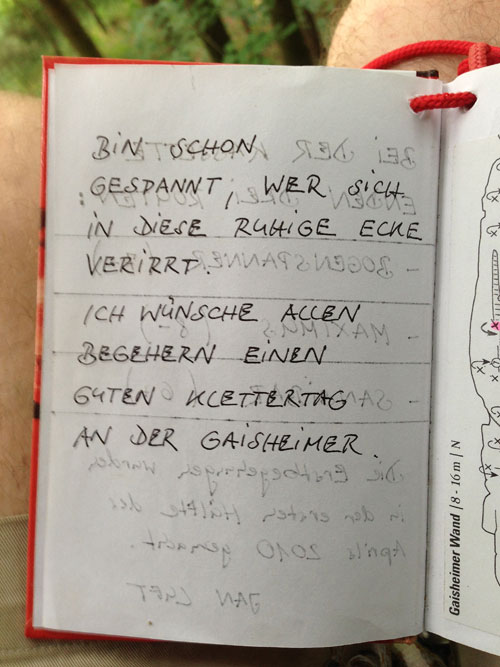 BIN SCHON
GESPANNT, WER SICH
IN DIESE RUHIGE ECKE
VERIRRT.
ICH WÜNSCHE ALLEN
BEGEHERN EINEN
GUTEN KLETTERTAG
AN DER GAISHEIMER.
Gaisheimer Wand | 8 - 16 m | N